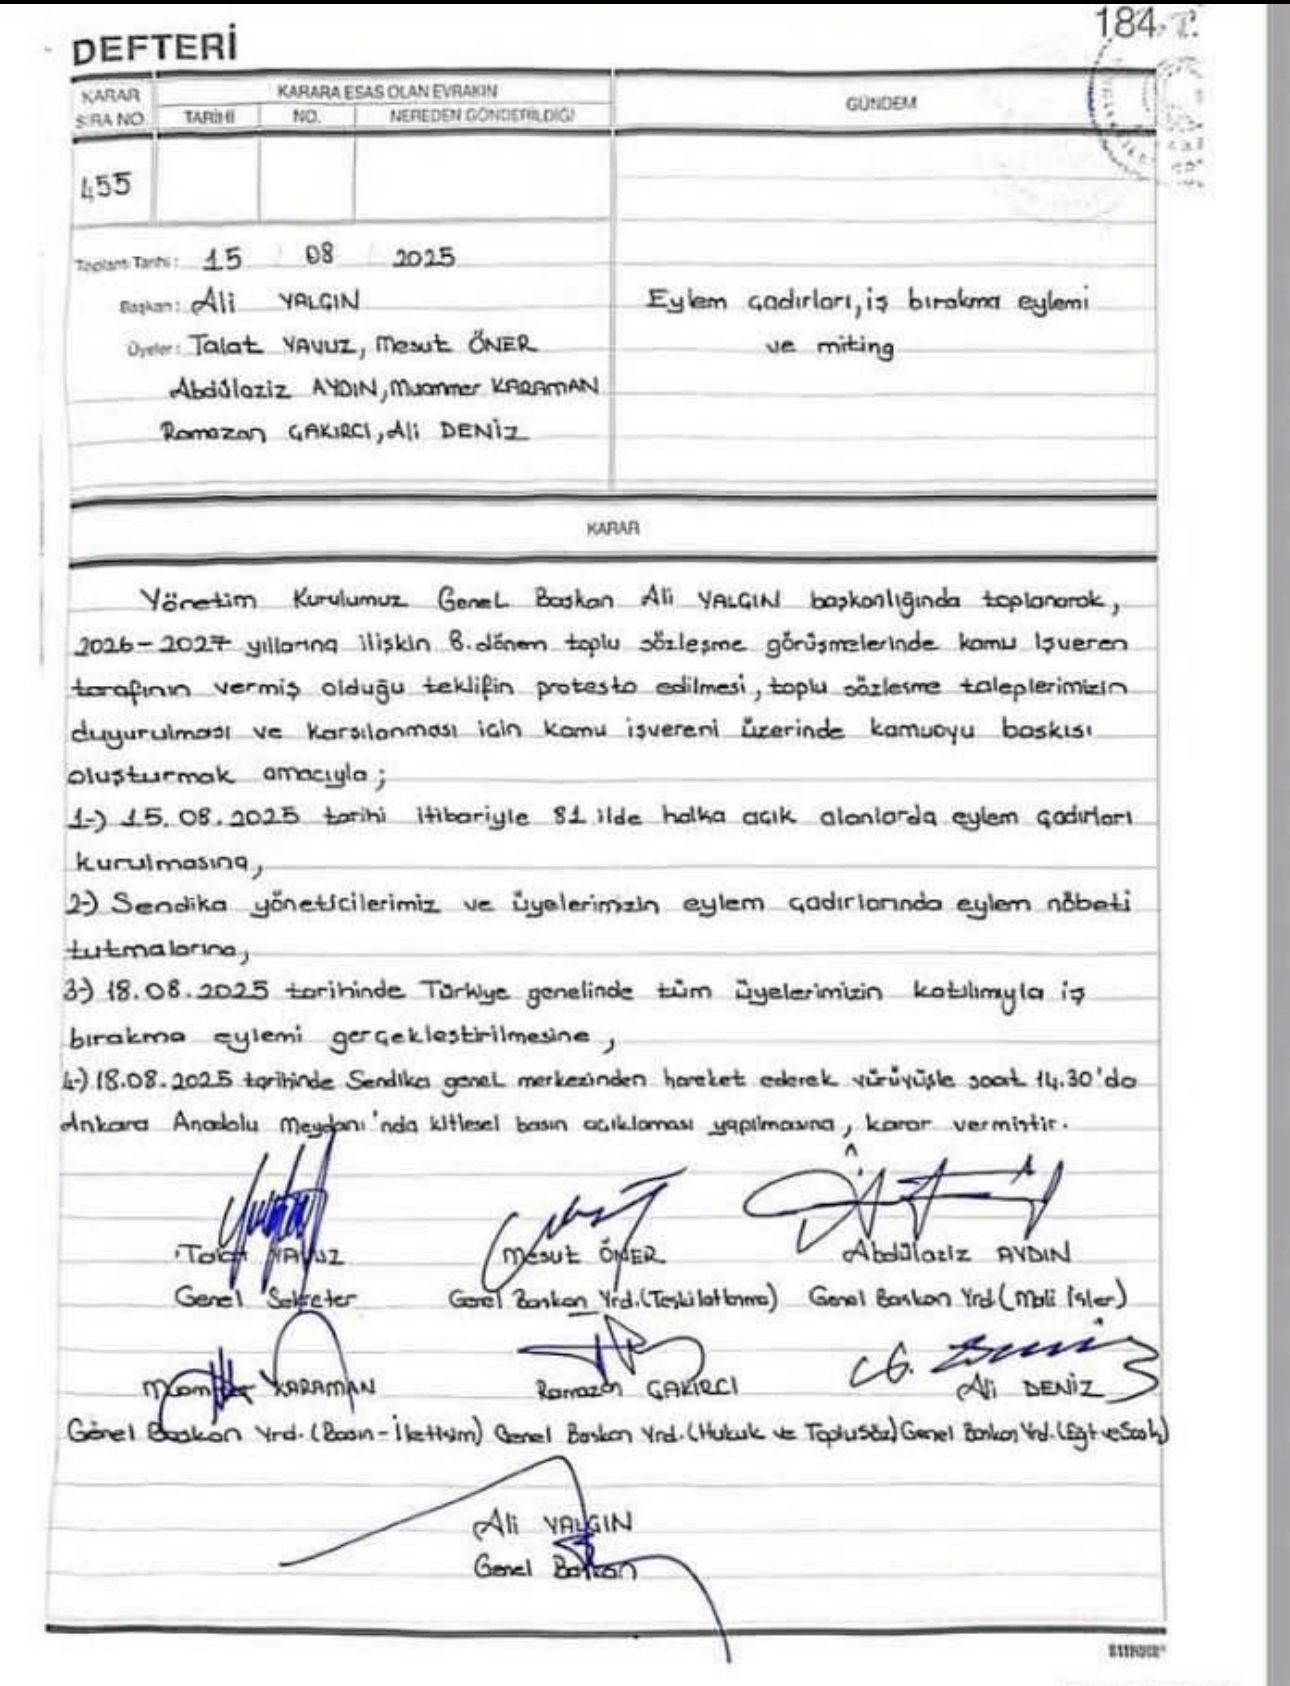 184
DEFTERİ
KARAR SIRA NO.
KARARA ESAS OLAN EVRAKIN
TARİHİ NO. NEREDEN GÖNDERİLDİĞİ
GÜNDEM
455
Toplantı Tarihi: 15 / 08 / 2025
Başkan: Ali YALÇIN
Üyeler: Talat YAVUZ, Mesut ÖNER
Abdülaziz AYDIN, Muammer KARAMAN
Ramazan ÇAKIRCI, Ali DENİZ
Eylem çadırları, iş bırakma eylemi
ve miting
KARAR
Yönetim Kurulumuz Genel Başkan Ali YALÇIN başkanlığında toplanarak,
2026-2027 yıllarına ilişkin 8. dönem toplu sözleşme görüşmelerinde kamu işveren
tarafının vermiş olduğu teklifin protesto edilmesi, toplu sözleşme taleplerimizin
duyurulması ve karşılanması için kamu işvereni üzerinde kamuoyu baskısı
oluşturmak amacıyla;
1-) 15.08.2025 tarihi itibariyle 81 ilde halka açık alanlarda eylem çadırları
kurulmasına,
2-) Sendika yöneticilerimiz ve üyelerimizin eylem çadırlarında eylem nöbeti
tutmalarına,
3-) 18.08.2025 tarihinde Türkiye genelinde tüm üyelerimizin katılımıyla iş
bırakma eylemi gerçekleştirilmesine,
4-) 18.08.2025 tarihinde Sendika genel merkezinden hareket ederek yürüyüşle saat 14.30'da
Ankara Anadolu Meydanı'nda kitlesel basın açıklaması yapılmasına, karar vermiştir.
Talat YAVUZ Mesut ÖNER Abdülaziz AYDIN
Genel Sekreter Genel Başkan Yrd. (Teşkilatlanma) Genel Başkan Yrd (Mali İşler)
Muammer KARAMAN Ramazan ÇAKIRCI Ali DENİZ
Genel Başkan Yrd. (Basın-İletişim) Genel Başkan Yrd. (Hukuk ve Toplusöz) Genel Başkan Yrd.
Ali YALÇIN
Genel Başkan